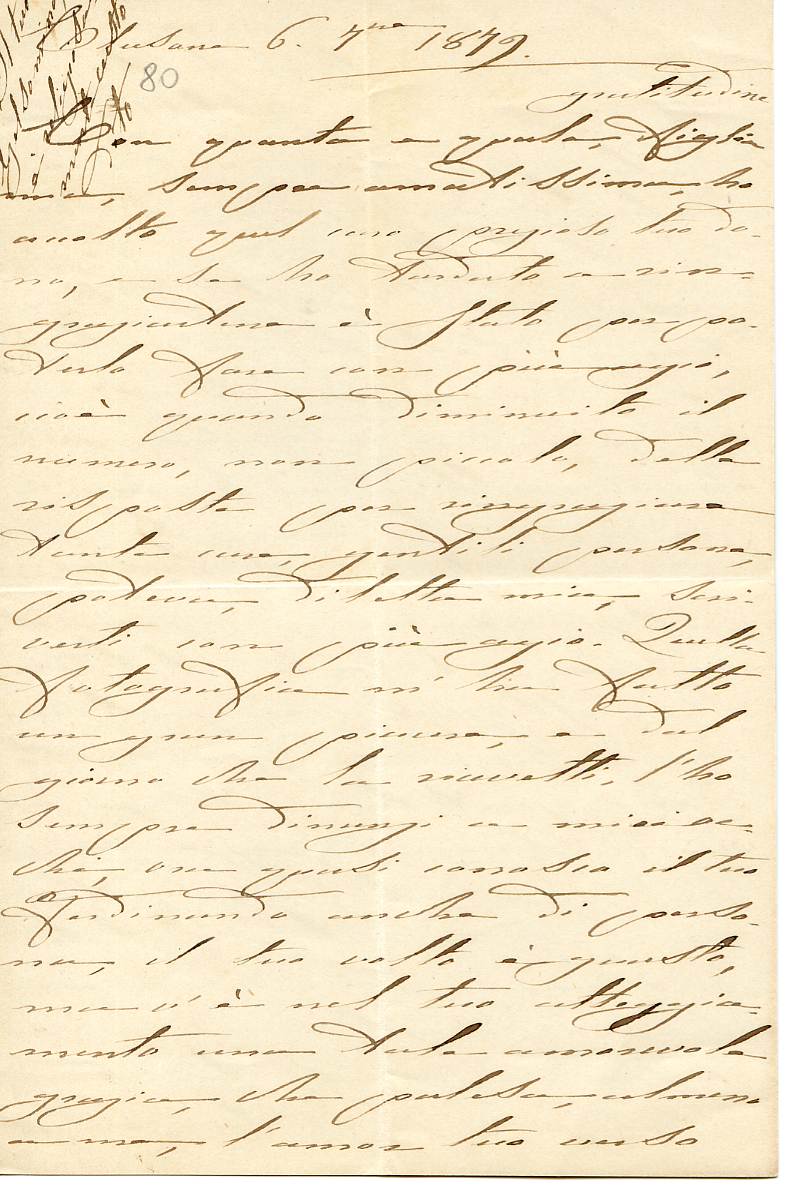 Clusane 6. 7bre 1879.
80
gratitudine
Con quanta e quale, Figlia
mia, sempre amatissima, ho
accolto quel caro pregiato tuo do-
no, e se ho tardato a rin-
graziartene è stato per po-
terlo fare con più agio,
cioè quando diminuito il
numero, non piccolo, delle
risposte per ringraziare
tante care, gentili persone,
poteva, diletta mia, scri-
verti con più agio. Quella
fotografia m'ha fatto
un gran piacere, e dal
giorno che la ricevetti, l'ho
sempre dinanzi a miei oc-
chi, ora quasi conosco il tuo
Ferdinando anche di perso-
na, il tuo volto è questo,
ma v'è nel tuo atteggia-
mento una tale amorevole
grazia, che palesa, almeno
a me, l'amor tuo verso